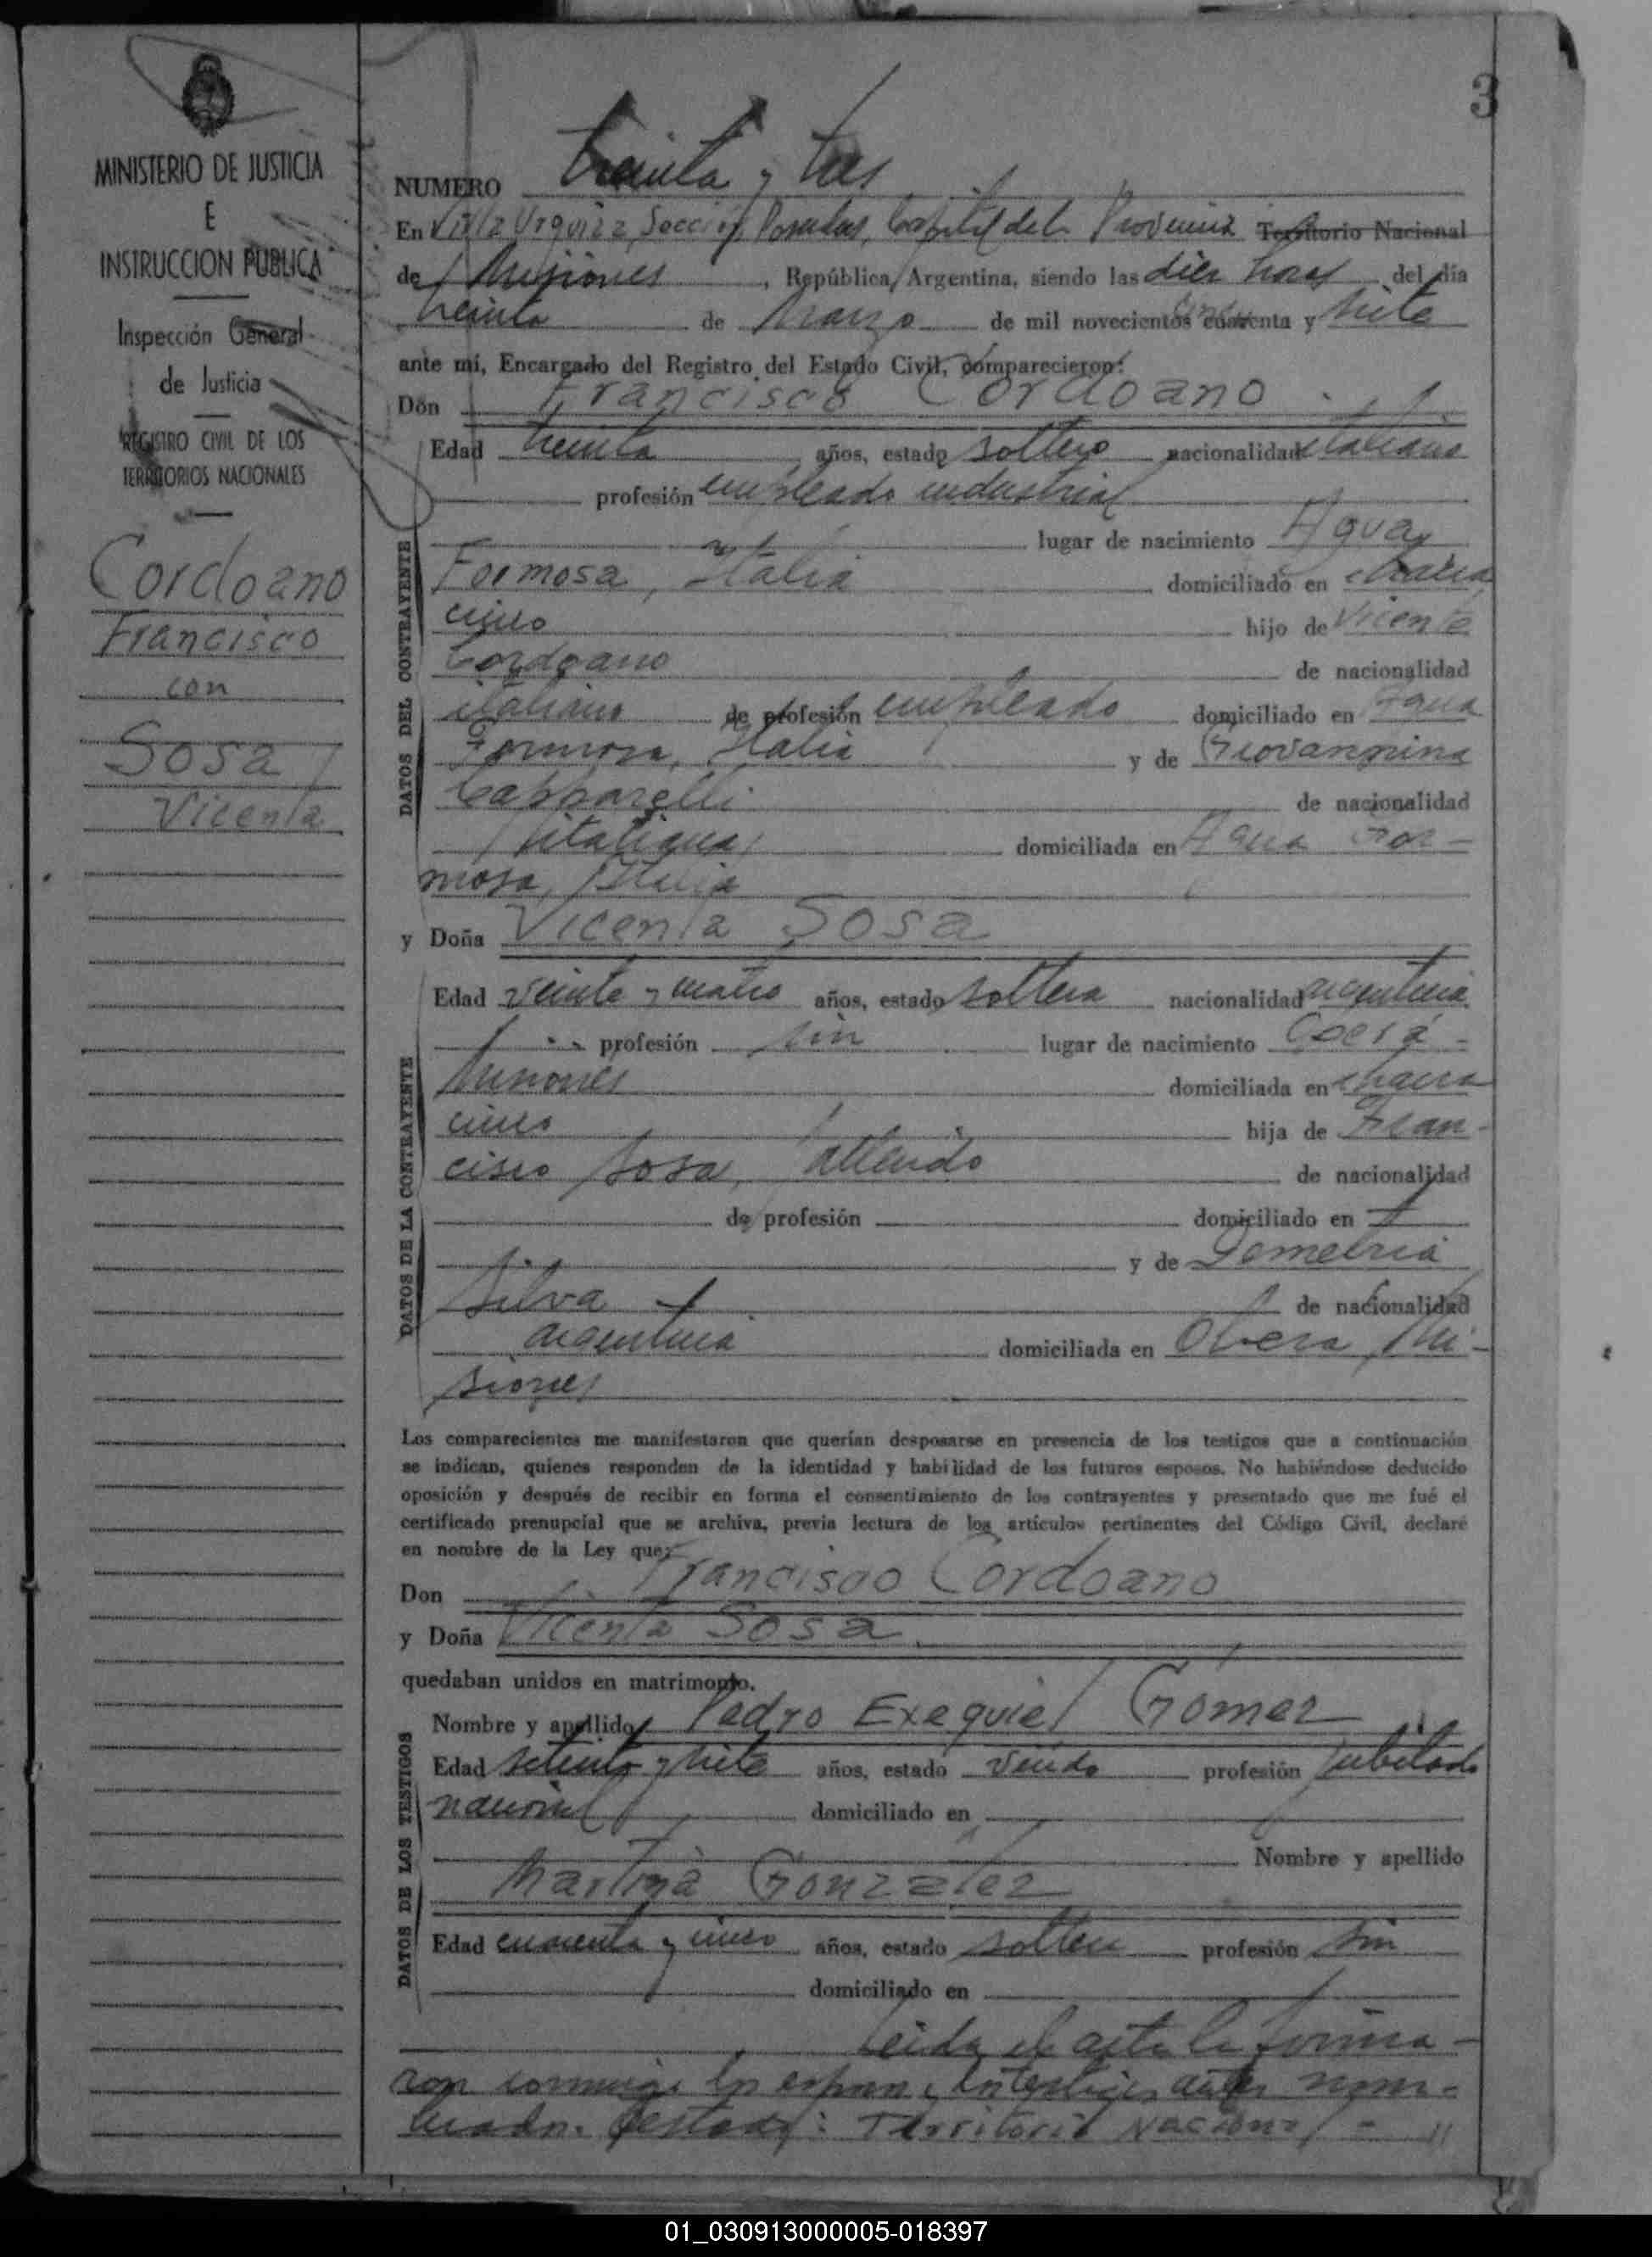 3
MINISTERIO DE JUSTICIA
E
INSTRUCCION PUBLICA
Inspección General
de Justicia
REGISTRO CIVIL DE LOS
TERRITORIOS NACIONALES
Cordoano
Francisco
con
Sosa
Vicenta
NUMERO treinta y tres
En Villa Urquiza, Sección Posadas, Capital del Provincia Territorio Nacional
de Misiones, República Argentina, siendo las diez horas del día
treinta de Marzo de mil novecientos cuarenta y siete
ante mí, Encargado del Registro del Estado Civil, comparecieron:
Don Francisco Cordoano
Edad treinta años, estado soltero nacionalidad italiano
profesión empleado industrial
lugar de nacimiento Agua
Formosa, Italia domiciliado en chacra
cinco hijo de Vicente
Cordoano de nacionalidad
italiano de profesión empleado domiciliado en Agua
Formosa, Italia y de Giovannina
Capparelli de nacionalidad
italiana domiciliada en Agua For-
mosa, Italia
DATOS DEL CONTRAYENTE
y Doña Vicenta Sosa
Edad veinte y cuatro años, estado soltera nacionalidad argentina
profesión sin lugar de nacimiento
Misiones domiciliada en chacra
cinco hija de Fran-
cisco Sosa, fallecido de nacionalidad
de profesión domiciliado en
y de Demetria
Silva de nacionalidad
argentina domiciliada en Obera, Mi-
siones
DATOS DE LA CONTRAYENTE
Los comparecientes me manifestaron que querían desposarse en presencia de los testigos que a continuación
se indican, quienes responden de la identidad y habilidad de los futuros esposos. No habiéndose deducido
oposición y después de recibir en forma el consentimiento de los contrayentes y presentado que me fué el
certificado prenupcial que se archiva, previa lectura de los artículos pertinentes del Código Civil, declaré
en nombre de la Ley que:
Don Francisco Cordoano
y Doña Vicenta Sosa
quedaban unidos en matrimonio.
Nombre y apellido Pedro Exequiel Gómez
Edad setenta y siete años, estado viudo profesión jubilado
nacional domiciliado en
Nombre y apellido
Martina González
Edad cuarenta y cinco años, estado soltera profesión sin
domiciliado en
DATOS DE LOS TESTIGOS
Leida el acta la firma-
ron conmigo los esposos y los testigos antes nom-
brados. Testado: Territorio Nacional = "
01_030913000005-018397